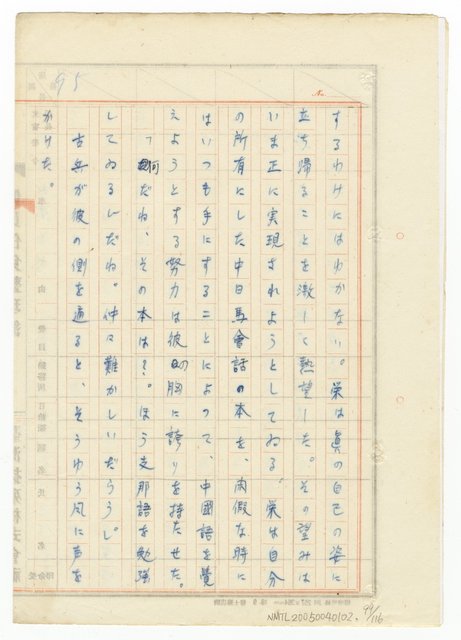 95
No.
するわけにはゆかない。栄は真の自己の姿に
立ち帰ることを激しく熱望した。その望みは
いま正に実現されようとしてゐる。栄は自分
の所有にした中日馬會話の本を、閑假な時に
はいつも手にすることによって、中國語を覺
えようとする努力は彼の胸に誇りを持たせた。
「何だね、その本は?。ほう支那語を勉強
してゐるんだね。仲々難かしいだらう」。
古兵が彼の側を通ると、そうゆう風に声を
かけた。
NMTL20050040102. 94/116